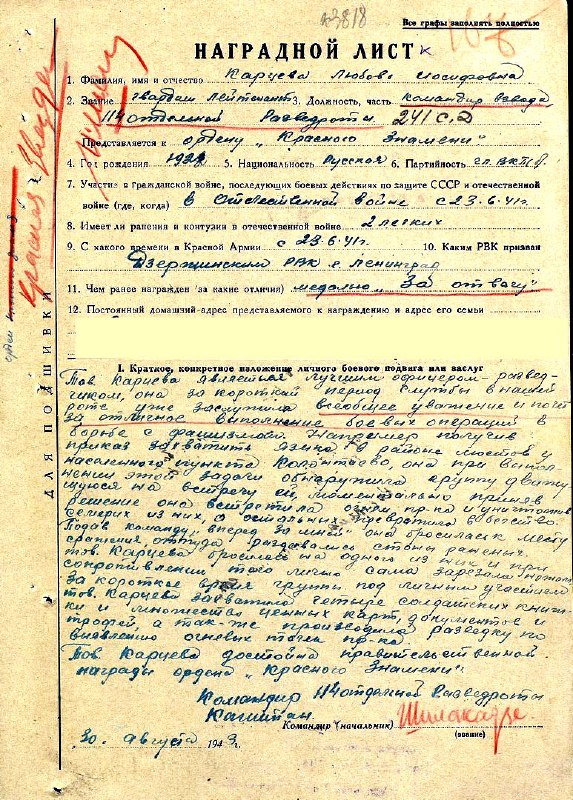 №3818
Все графы заполнять полностью
НАГРАДНОЙ ЛИСТ
1. Фамилия, имя и отчество Карцева Любовь Иосифовна
2. Звание гвардии лейтенант 3. Должность, часть командир взвода
114 отдельной Разведроты 241 с.д.
Представляется к ордену „Красного Знамени"
4. Год рождения 5. Национальность Русская 6. Партийность
7. Участие в гражданской войне, последующих боевых действиях по защите СССР и отечественной
войне (где, когда) в отечественной войне с 23.6.41г.
8. Имеет ли ранения и контузии в отечественной войне 2 легких
9. С какого времени в Красной Армии с 23.6.41г. 10. Каким РВК призван
Дзержинским РВК г. Ленинград
11. Чем ранее награжден (за какие отличия) медалью „За отвагу"
12. Постоянный домашний адрес представляемого к награждению и адрес его семьи
I. Краткое, конкретное изложение личного боевого подвига или заслуг
Тов. Карцева является лучшим офицером-развед-
чиком, она за короткий период службы в нашей
роте уже заслужила всеобщее уважение и почет
за отличное выполнение боевых операций в
борьбе с фашизмом. Например получив
приказ захватить языка в районе мостов у
населенного пункта она при выпол-
нении этой задачи обнаружила группу двигу-
щуюся на встречу ей, моментально приняв
решение она встретила огнем пр-ка и уничтожив
семерых из них, а остальных превратила в бегство.
Подав команду „вперед за мной" она бросилась к месту
сражения, откуда раздавались стоны раненых.
тов. Карцева бросилась на одного из них и при
сопротивлении того лично сама зарезала ножом.
За короткое время группа под личным участием
тов. Карцева захватила четыре солдатских книж-
ки и множество ценных карт, документов и
трофей, а так-же производила разведку по
выявлению огневых точек пр-ка.
Тов Карцева достойна правительственной
награды ордена „Красного Знамени".
Командир 114 отдельной Разведроты
Капитан
Командир (начальник)
(звание)
30. августа 1943г.
ДЛЯ ПОДШИВКИ
Красная Звезда